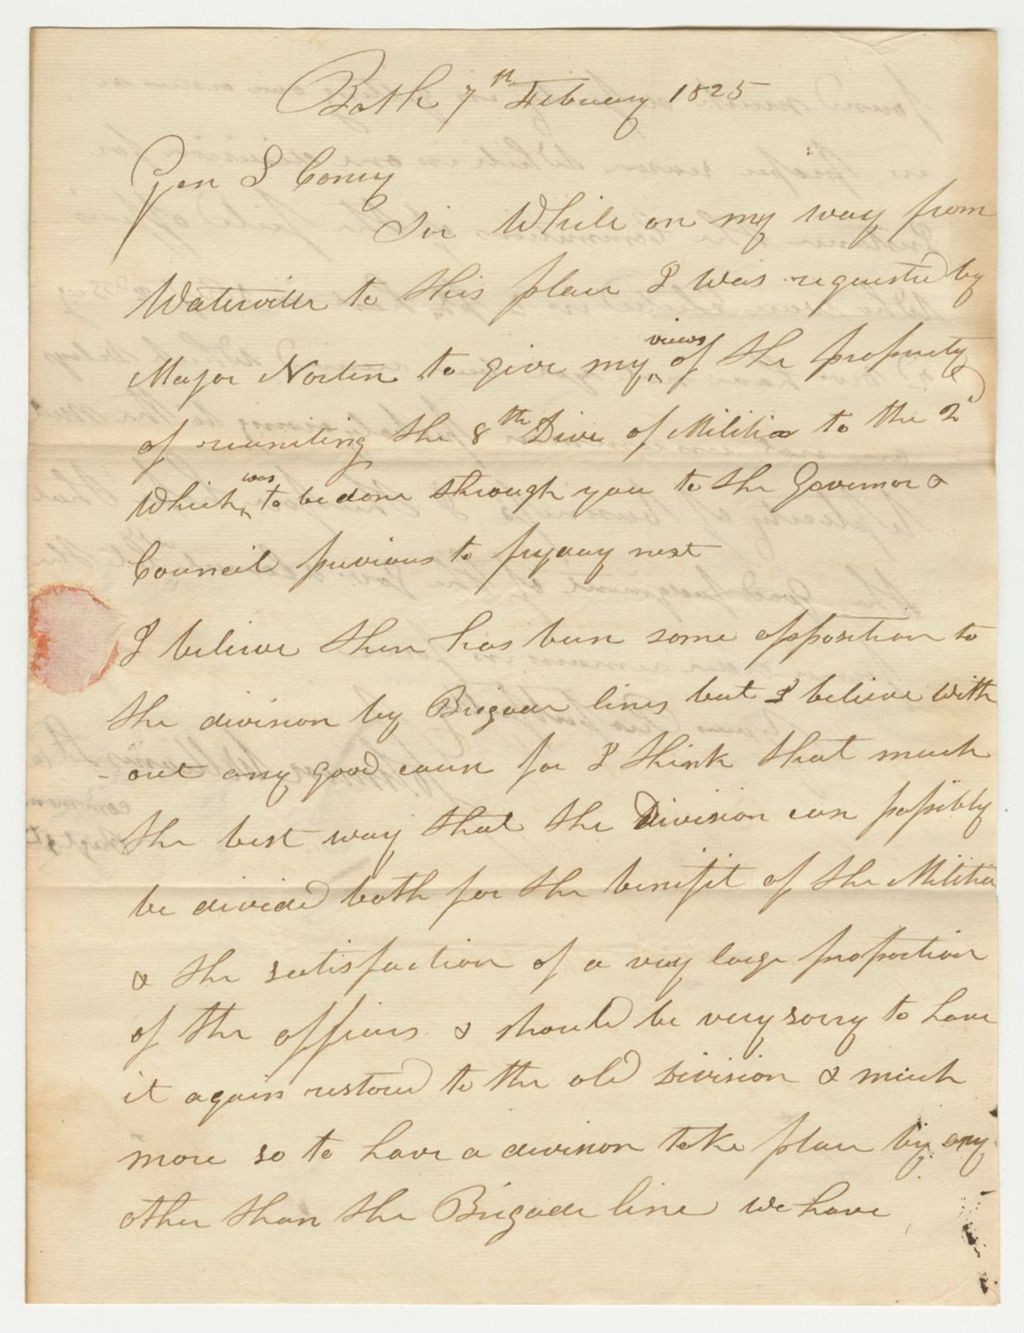 Bath 7th February 1825
Gen S Cony
Sir While on my way from
Waterville to this place I was requested by
Major Norten to give my views of the propriety
of reuniting the 8th Divi of Militia to the 2d
Which was to be done through you to the Governor &
Council previous to fryday next
I believe their has been some opposition to
the division by Brigade lines but I believe with
out any good cause for I think that much
the best way that the Division can possibly
be divided both for the benifit of the Militia
& the satisfaction of a very large proportion
of the officers & should be very sorry to have
it again restored to the old Division & much
more so to have a division take place by any
other than the Brigade line we have